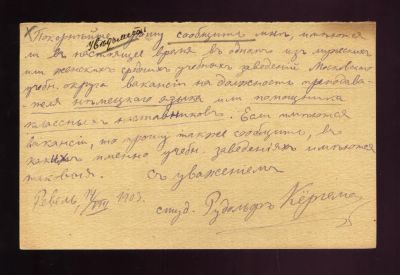 Покорнѣйше прошу сообщить мнѣ, имѣются
увѣдомить
ли въ настоящее время въ одномъ изъ мужскихъ
или женскихъ среднихъ учебныхъ заведеній Московскаго
учебн. округа вакансіи на должность преподава-
теля нѣмецкаго языка или помощника
классныхъ наставниковъ. Если имѣются
вакансіи, то прошу также сообщить, въ
какихъ именно учебн. заведеніяхъ имѣются
таковыя.
Съ уваженіемъ
Ревель, VIII 190
студ. Рудольфъ Кёргема